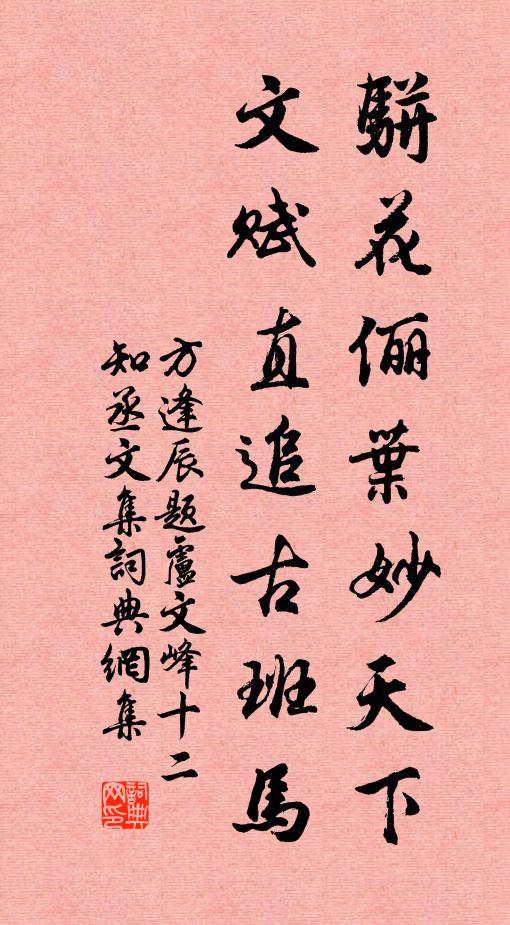 駢花儷葉妙天下
文賦直追古班馬
方逢辰題盧文峰十二
知丞文集詞典網集
詞典網印